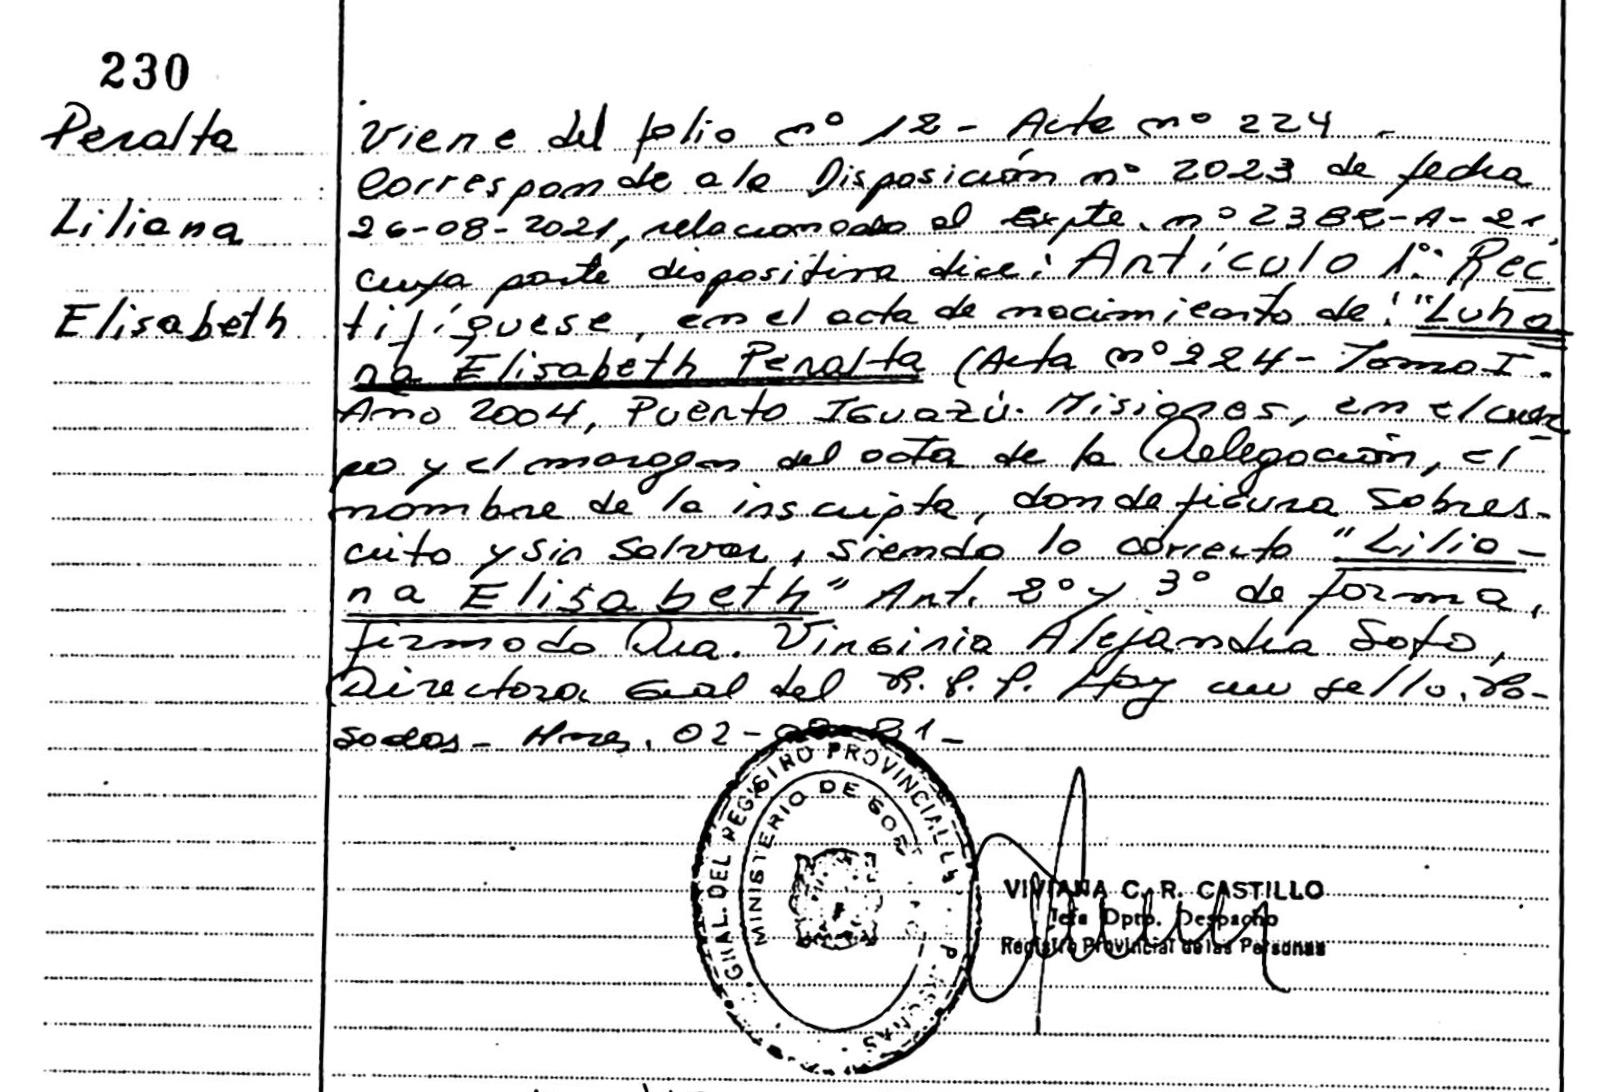 230
Peralta
Liliana
Elisabeth
Viene del folio nº 12 - Acta nº 224 -
Corresponde a la Disposición nº 2023 de fecha
26-08-2021, relacionado al Expte. nº 2382-A-21,
cuya parte dispositiva dice: Artículo 1º: Rec
tifíquese, en el acta de nacimiento de: "Luha
na Elisabeth Peralta (Acta nº 224 - Tomo I -
Año 2004, Puerto Iguazú. Misiones, en el cuer
po y el margen del acta de la Delegación, el
nombre de la inscripta, donde figura sobres-
crito y sin salvar, siendo lo correcto "Lilia-
na Elisabeth" Art. 2º y 3º de forma,
firmado Dra. Virginia Alejandra Soto,
Directora Gral del R. P. P. Hay un sello. Po-
sadas - Mnes, 02- 21-
GRAL. DEL REGISTRO PROVINCIAL
MINISTERIO DE
VIVIANA C. R. CASTILLO
Jefa Dpto. Despacho
Registro Provincial de las Personas